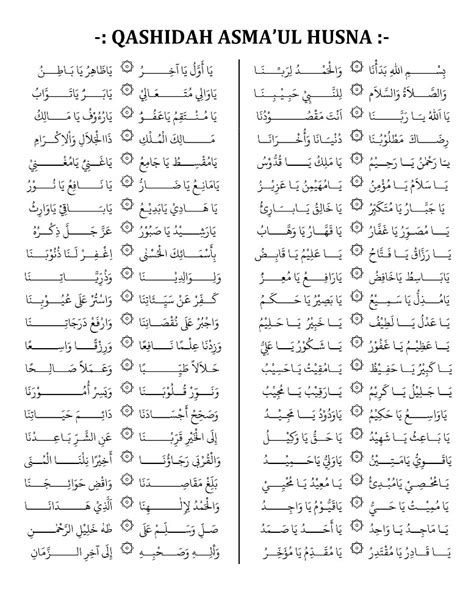 -: QASHIDAH ASMA’UL HUSNA :-
بِسْمِ اللهِ بَدَأْنَا ۞ وَالْحَمْدُ لِرَبِّنَا
وَالصَّلَاةُ وَالسَّلَام ۞ لِلنَّبِيِّ حَبِيْبِنَا
يَا اَللهُ يَا رَبَّنَا ۞ أَنْتَ مَقْصُوْدُنَا
رِضَاكَ مَطْلُوْبُنَا ۞ دُنْيَانَا وَأُخْرَانَا
يَا رَحْمٰنُ يَا رَحِيْمُ ۞ يَا مَلِكُ يَا قُدُّوْسُ
يَا سَلَامُ يَا مُؤْمِنُ ۞ يَا مُهَيْمِنُ يَا عَزِيْزُ
يَا جَبَّارُ يَا مُتَكَبِّرُ ۞ يَا خَالِقُ يَابَارِئُ
يَا مُصَوِّرُ يَا غَفَّارُ ۞ يَا قَهَّارُ يَا وَهَّابُ
يَا رَزَّاقُ يَا فَتَّاحُ ۞ يَا عَلِيْمُ يَا قَابِضُ
يَابَاسِطُ يَاخَافِضُ ۞ يَارَافِعُ يَا مُعِزُّ
يَامُذِلُّ يَا سَمِيْعُ ۞ يَا بَصِيْرُ يَا حَكَمُ
يَا عَدْلُ يَا لَطِيْفُ ۞ يَا خَبِيْرُ يَا حَلِيْمُ
يَا عَظِيْمُ يَا غَفُوْرُ ۞ يَا شَكُوْرُ يَا عَلِيُّ
يَا كَبِيْرُ يَا حَفِيْظُ ۞ يَا مُقِيْتُ يَاحَسِيْبُ
يَا جَلِيْلُ يَا كَرِيْمُ ۞ يَارَقِيْبُ يَا مُجِيْبُ
يَاوَاسِعُ يَا حَكِيْمُ ۞ يَاوَدُوْدُ يَا مَجِيْدُ
يَا بَاعِثُ يَا شَهِيْدُ ۞ يَا حَقُّ يَا وَكِيْلُ
يَاقَوِيُّ يَامَتِيْنُ ۞ يَاوَلِيُّ يَاحَمِيْدُ
يَامُحْصِيْ يَامُبْدِئُ ۞ يَا مُعِيْدُ يَا مُحْيِيْ
يَا مُمِيْتُ يَا حَيُّ ۞ يَاقَيُّوْمُ يَا وَاجِدُ
يَا مَاجِدُ يَا وَاحِدُ ۞ يَا أَحَدُ يَا صَمَدُ
يَا قَادِرُ يَا مُقْتَدِرُ ۞ يَا مُقَدِّمُ يَا مُؤَخِّرُ
يَا أَوَّلُ يَا آخِرُ ۞ يَاظَاهِرُ يَا بَاطِنُ
يَاوَالِيْ يَا مُتَعَالِيْ ۞ يَابَرُّ يَاتَوَّابُ
يَا مُنْتَقِمُ يَاعَفُوُّ ۞ يَارَءُوْفُ يَا مَالِكُ
مَالِكَ الْمُلْكِ ۞ ذَاالْجَلَالِ وَالْاِكْرَامِ
يَامُقْسِطُ يَا جَامِعُ ۞ يَاغَنِيُّ يَامُغْنِيْ
يَامَانِعُ يَا ضَارُّ ۞ يَا نَافِعُ يَا نُوْرُ
يَا هَادِيْ يَابَدِيْعُ ۞ يَابَاقِيْ يَاوَارِثُ
يَارَشِيْدُ يَا صَبُوْرُ ۞ عَزَّ جَلَّ ذِكْرُهُ
بِأَسْمَائِكَ الْحُسْنٰى ۞ اِغْفِرْ لَنَا ذُنُوْبَنَا
وَلِوَالِدِيْنَا ۞ وَذُرِّيَّاتِنَا
كَفِّرْ عَنْ سَيِّئَاتِنَا ۞ وَاسْتُرْ عَلٰى عُيُوْبِنَا
وَاجْبُرْ عَلٰى نُقْصَانِنَا ۞ وَارْفَعْ دَرَجَاتِنَا
وَزِدْنَا عِلْمًا نَافِعًا ۞ وَرِزْقًا وَاسِعًا
حَلَالًا طَيِّبًا ۞ وَعَمَلًا صَالِحًا
وَنَوِّرْ قُلُوْبَنَا ۞ وَيَسِّرْ أُمُوْرَنَا
وَصَحِّحْ أَجْسَادَنَا ۞ دَائِمَ حَيَاتِنَا
إِلَى الْخَيْرِ قَرِّبْنَا ۞ عَنِ الشَّرِّ بَاعِدْنَا
وَالْقُرْبٰى رَجَاؤُنَا ۞ أَخِيْرًا نِلْنَا الْمُنٰى
بَلِّغْ مَقَاصِدَنَا ۞ وَاقْضِ حَوَائِجَنَا
وَالْحَمْدُ لِإِلٰهِنَا ۞ اَلَّذِيْ هَدَانَا
صَلِّ وَسَلِّمْ عَلٰى ۞ طٰهَ خَلِيْلِ الرَّحْمٰنِ
وَاٰلِهِ وَصَحْبِهِ ۞ إِلَى آخِرِ الزَّمَانِ